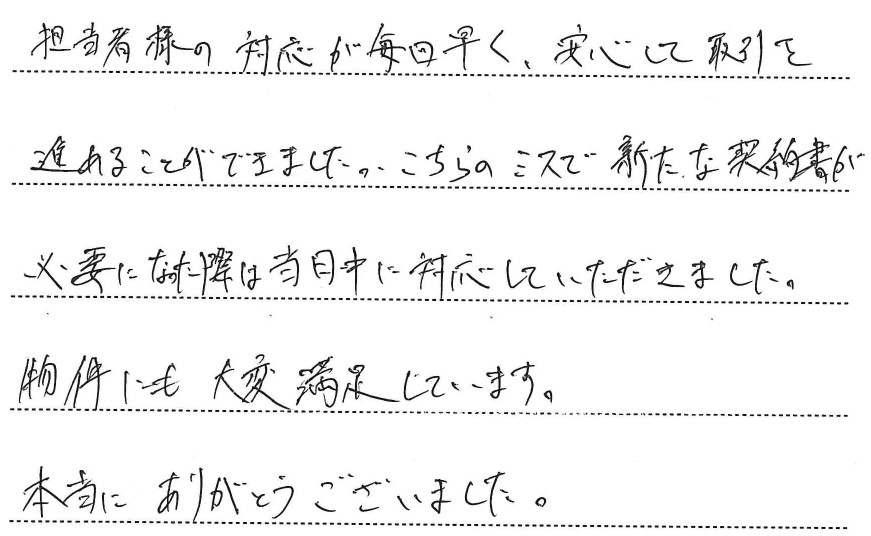 担当者様の対応が毎回早く、安心して取引を
進めることができました。こちらのミスで新たな契約書が
必要になった際は当日中に対応していただきました。
物件にも大変満足しています。
本当にありがとうございました。